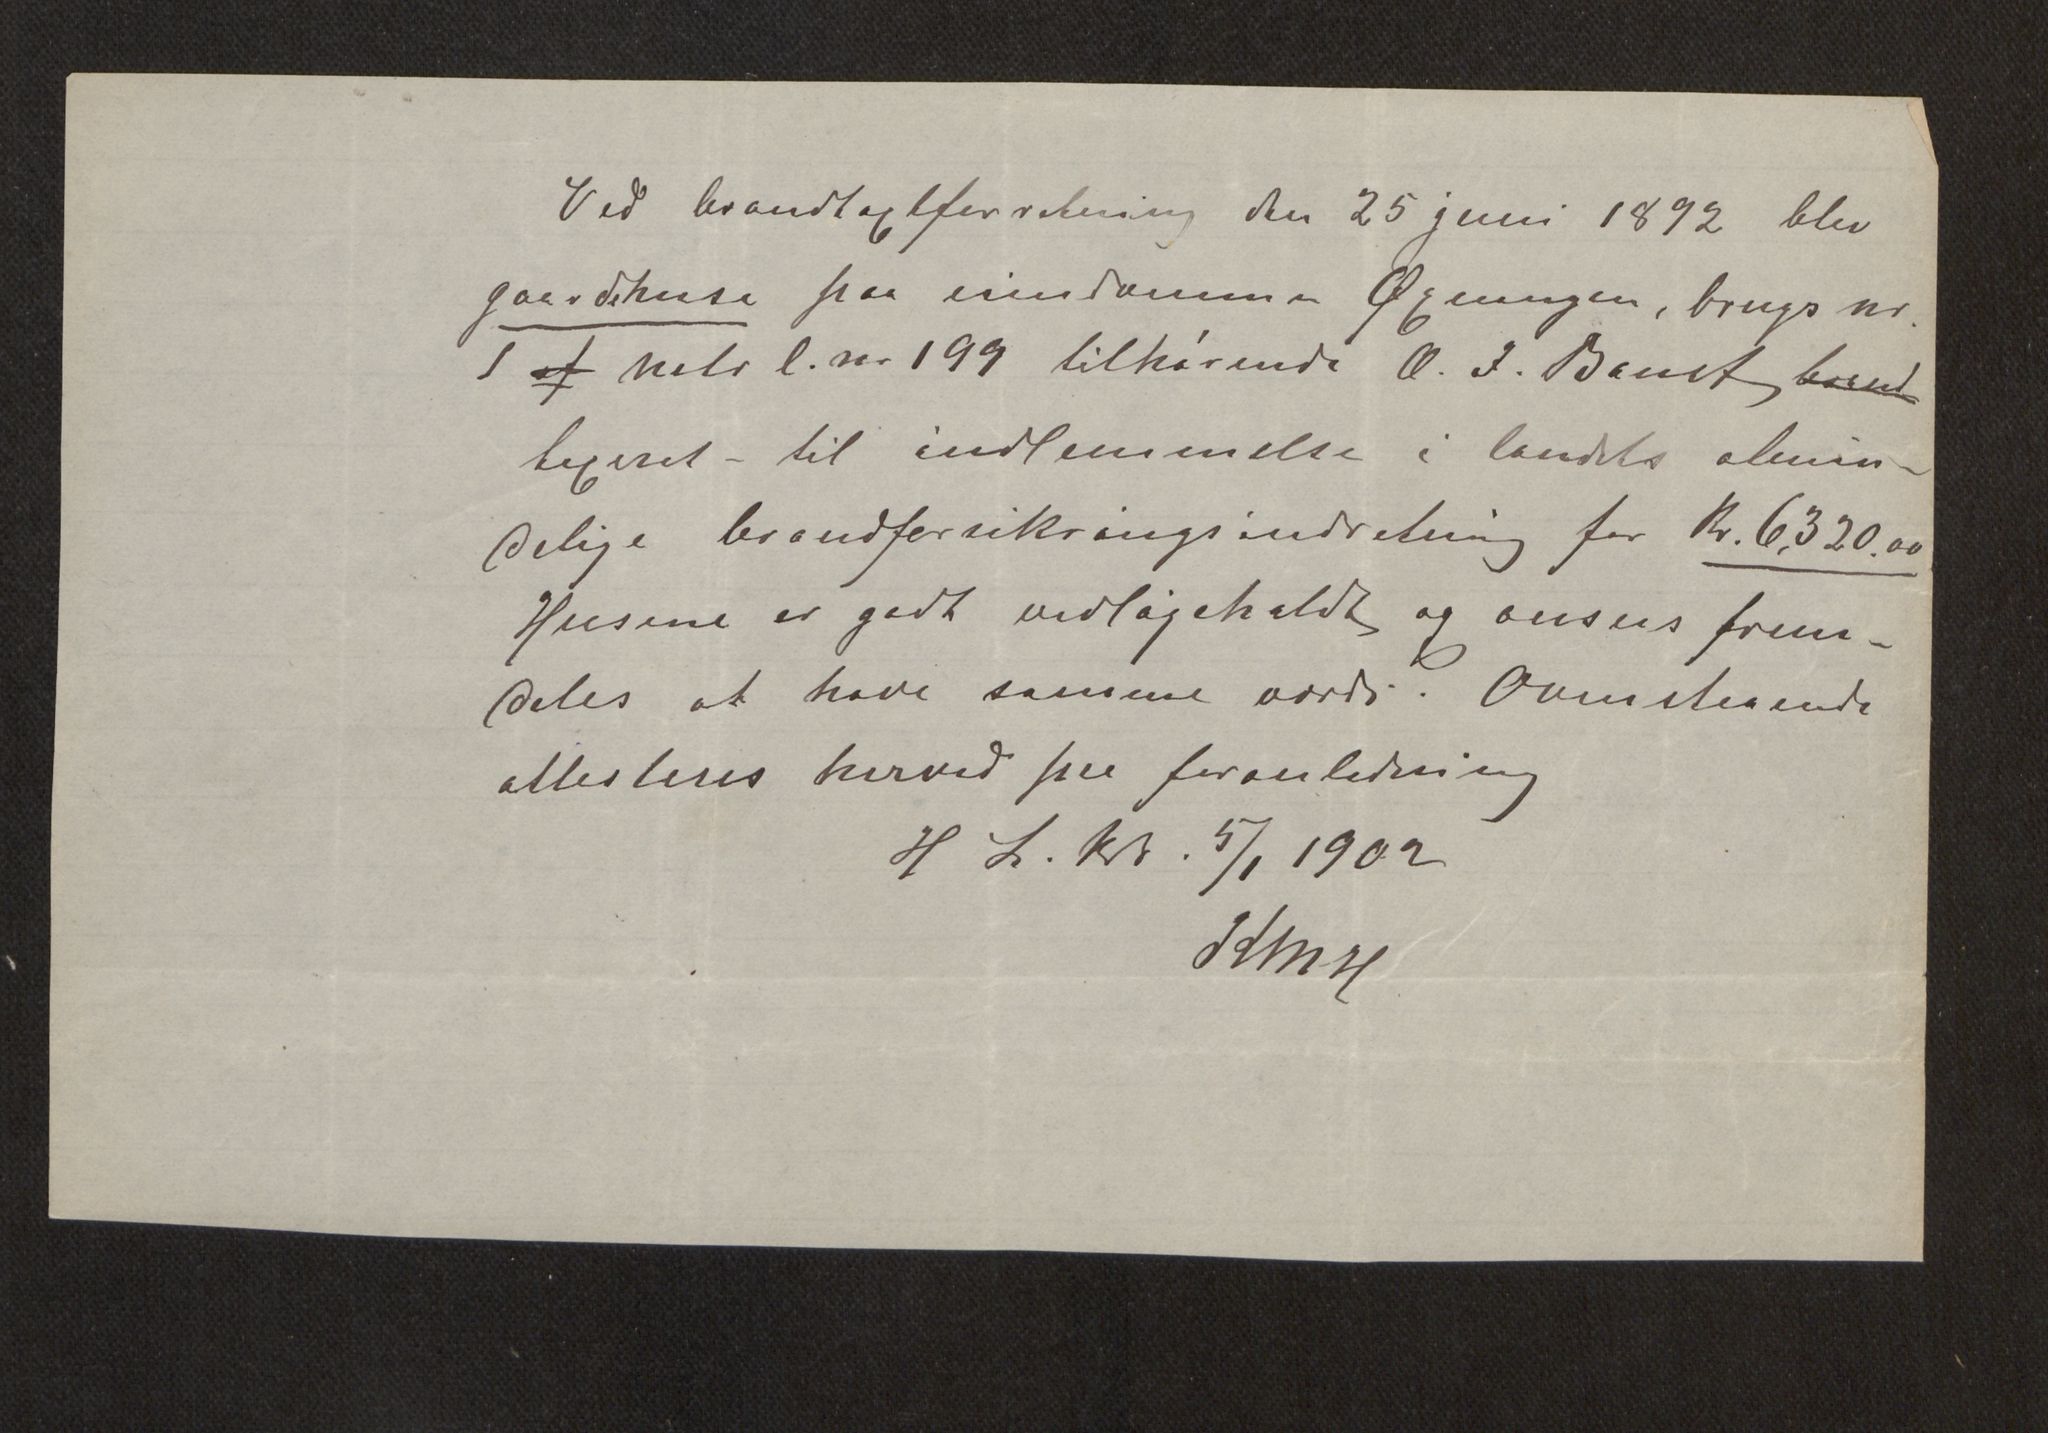 Ved brandtaxtforretning den 25 juni 1892 blev
gaardshuse paa eiendommen Øxningen, brugs nr.
1 af matr l. nr 199 tilhørende O. J. Banef, brand
taxeret - til indlemmelse i landets almin-
delige brandforsikringsindretning for Kr. 6,320.00
Husene er godt vedligeholdt og ansees frem-
deles at have samme værdi. Ovenstaaende
attesteres herved paa foranledning
H L. Ktr. 5/1 1902